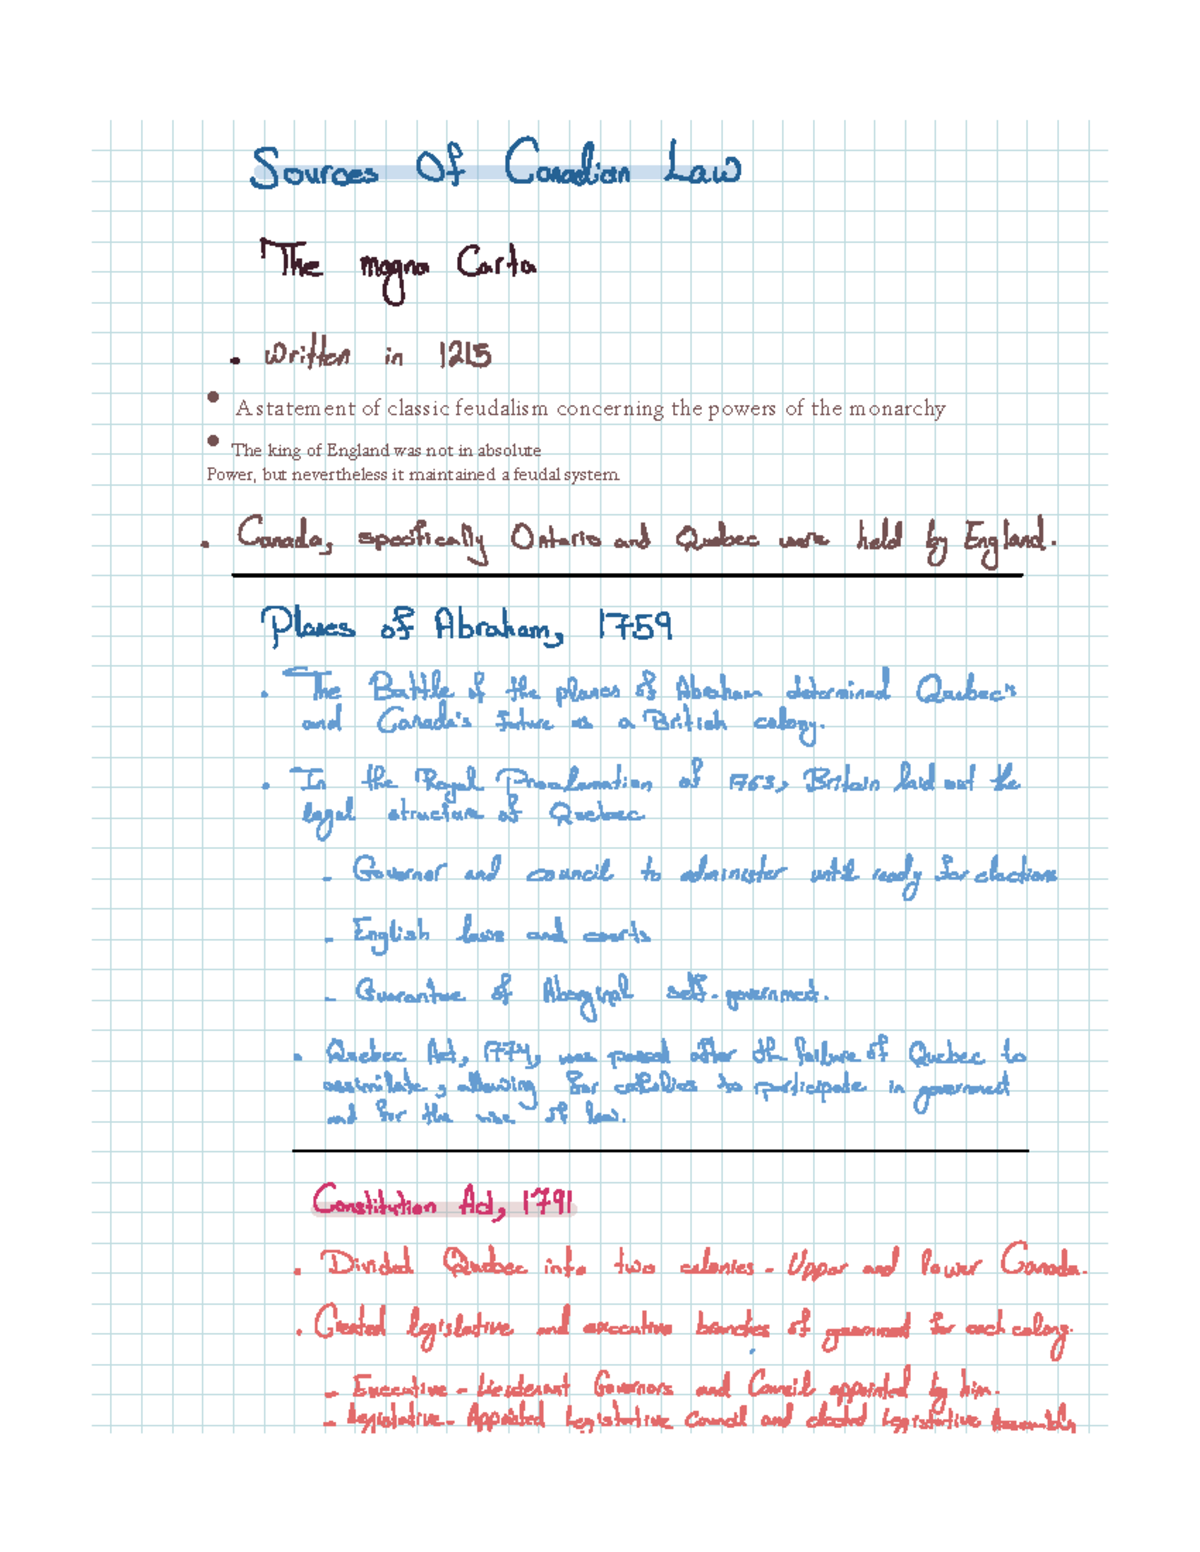 Sources Of Canadian Law
The magna Carta
• written in 1215
• A statement of classic feudalism concerning the powers of the monarchy
• The king of England was not in absolute
Power, but nevertheless it maintained a feudal system.
• Canada, specifically Ontario and Quebec were held by England.
Planes of Abraham, 1759
• The Battle of the planes of Abraham determined Quebec's
and Canada's future as a British colony.
• In the Royal Proclamation of 1763, Britain laid out the
legal structure of Quebec
- Governor and council to administer until ready for elections
- English laws and courts
- Guarantee of Aborginal self-government.
• Quebec Act, 1774, was passed after the failure of Quebec to
assimilate, allowing for catholics to participate in government
and for the use of law.
Constitution Act, 1791
• Divided Quebec into two colonies - Upper and lower Canada.
• Created legislative and executive branches of government for each colony.
- Executive - Lieutenant Governors and Council appointed by him.
- Legislative - Appointed Legislative Council and elected Legislative Assembly